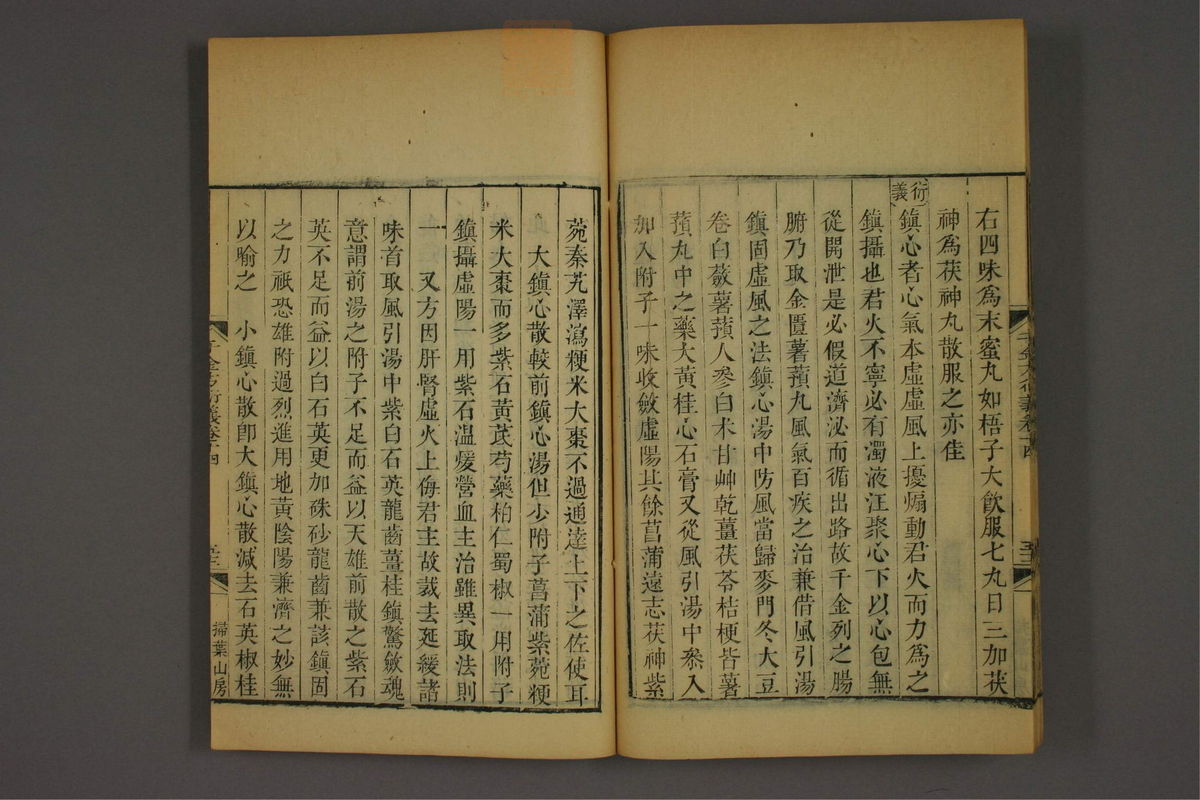 右四味爲末蜜丸如梧子大飮服七丸日三加茯
神爲茯神丸散服之亦佳
衍義
鎭心者心氣本虛虛風上擾煽動君火而力爲之
鎭攝也君火不寧必有濁液汪聚心下以心包無
從開泄是必假道濟泌而循出路故千金列之腸
腑乃取金匱薯蕷丸風氣百疾之治兼借風引湯
鎭固虛風之法鎭心湯中防風當歸麥門冬大豆
卷白蘞薯蕷人參白朮甘艸乾薑茯苓桔梗皆薯
蕷丸中之藥大黃桂心石膏又從風引湯中叅入
加入附子一味收斂虛陽其餘菖蒲遠志茯神紫
菀秦艽澤瀉粳米大棗不過通達上下之佐使耳
大鎭心散較前鎭心湯但少附子菖蒲紫菀粳
米大棗而多紫石黃芪芍藥柏仁蜀椒一用附子
鎭攝虛陽一用紫石溫煖營血主治雖異取法則
一　又方因肝腎虛火上侮君主故裁去延緩諸
味首取風引湯中紫白石英龍齒薑桂鎭驚斂魂
意謂前湯之附子不足而益以天雄前散之紫石
英不足而益以白石英更加硃砂龍齒兼該鎭固
之力祇恐雄附過烈進用地黃陰陽兼濟之妙無
以喻之　小鎭心散卽大鎭心散減去石英椒桂
千金方衍義卷十四
掃葉山房